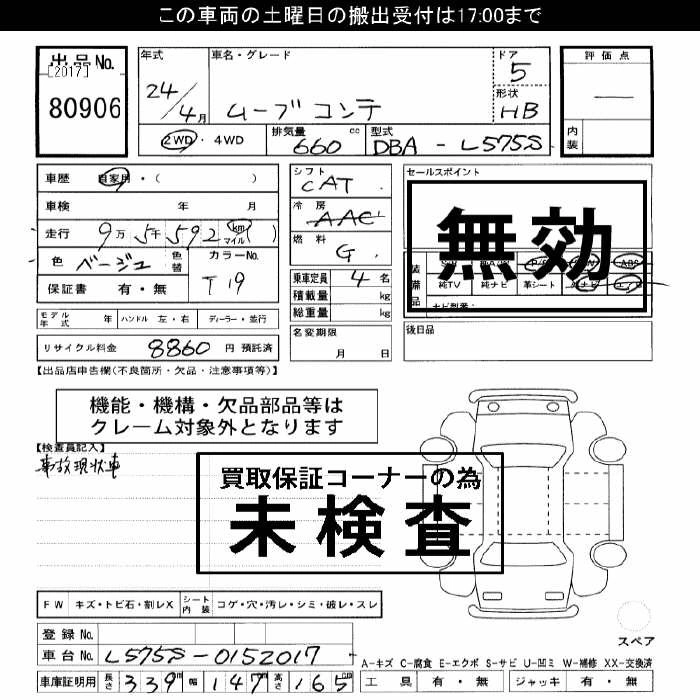 この車両の土曜日の搬出受付は17:00まで
出品No.
[2017]
80906
年式
24/4月
車名・グレード
ムーブコンテ
ドア
5
形状
HB
評価点
―
内装
2WD・4WD
排気量 660 cc
型式 DBA - L575S
車歴 自家用・( )
車検 年 月
走行 9万5千592 km マイル ( )
色 ベージュ 色替
カラーNo.
T19
保証書 有・無
シフト
CAT
冷房
AAC
燃料
G
乗車定員 4名
積載量 kg
総重量 kg
名変期限
月 日
セールスポイント
無効
装備品
P/S
ABS
純TV 純ナビ 革シート
後日品
モデル年式 年 ハンドル 左・右 ディーラー・並行
リサイクル料金 8860 円 預託済
【出品店申告欄(不良箇所・欠品・注意事項等)】
機能・機構・欠品部品等は
クレーム対象外となります
【検査員記入】
事故現状車
買取保証コーナーの為
未検査
FW キズ・トビ石・割レX シート内装 コゲ・穴・汚レ・シミ・破レ・スレ
登録No.
車台No. L575S-0152017
車庫証明用 長さ 339 cm 幅 147 cm 高さ 165 cm
スペア
A-キズ C-腐食 E-エクボ S-サビ U-凹ミ W-補修 XX-交換済
工具 有・無 ジャッキ 有・無